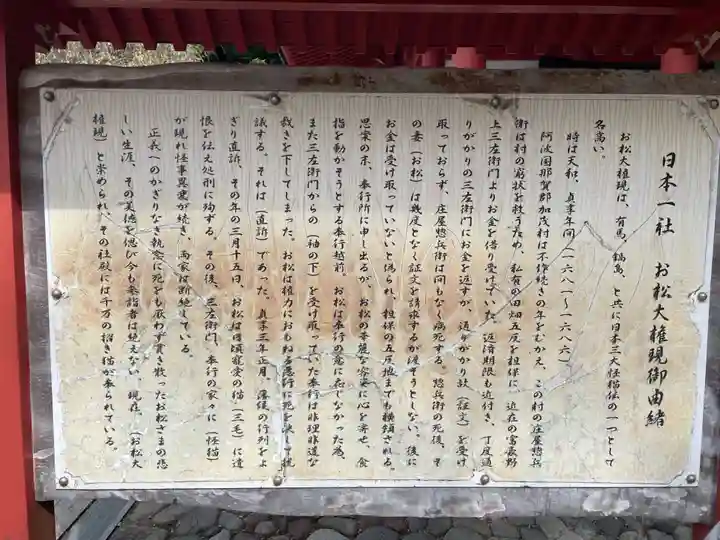 日本一社 お松大権現御由緒
お松大権現は、有馬、鍋島、と共に日本三大怪猫伝の一つとして
名高い。
時は天和、貞享年間（一六八一～一六八六）
阿波国那賀郡加茂村は不作続きの年をむかえ、この村の庄屋惣兵
衛は村の窮状を救うため、私有の田畑五反を担保に、近在の富豪野
上三左衛門よりお金を借り受けていた。返済期限も近付き、丁度通
りがかりの三左衛門にお金を返すが、通りがかり故（証文）を受け
取っておらず、庄屋惣兵衛は間もなく病死する。惣兵衛の死後、そ
の妻（お松）は幾度となく証文を請求するが渡そうとしない、後に
お金は受け取っていないと偽られ、担保の五反地までも横領される。
思案の末、奉行所に申し出るが、お松の秀麗な容姿に心を寄せ、食
指を動かそうとする奉行越前、お松は奉行の意に応じなかった為、
また三左衛門からの（袖の下）を受け取っていた奉行は非理非道な
裁きを下してしまった。お松は権力におもねる悪行に死を決して抗
議する。それは（直訴）であった。貞享三年正月、藩侯の行列をよ
ぎり直訴、その年の三月十五日、お松は日頃寵愛の猫（三毛）に遺
恨を伝え処刑に殉ずる。その後、三左衛門、奉行の家々に（怪猫）
が現れ怪事異変が続き、両家は断絶している。
正義へのかぎりなき執念に死をも厭わず貫き散ったお松さまの悲
しい生涯、その美徳を偲び今も参詣者は絶えない。現在、（お松大
権現）と崇められ、その社殿には千万の招き猫が奉られている。